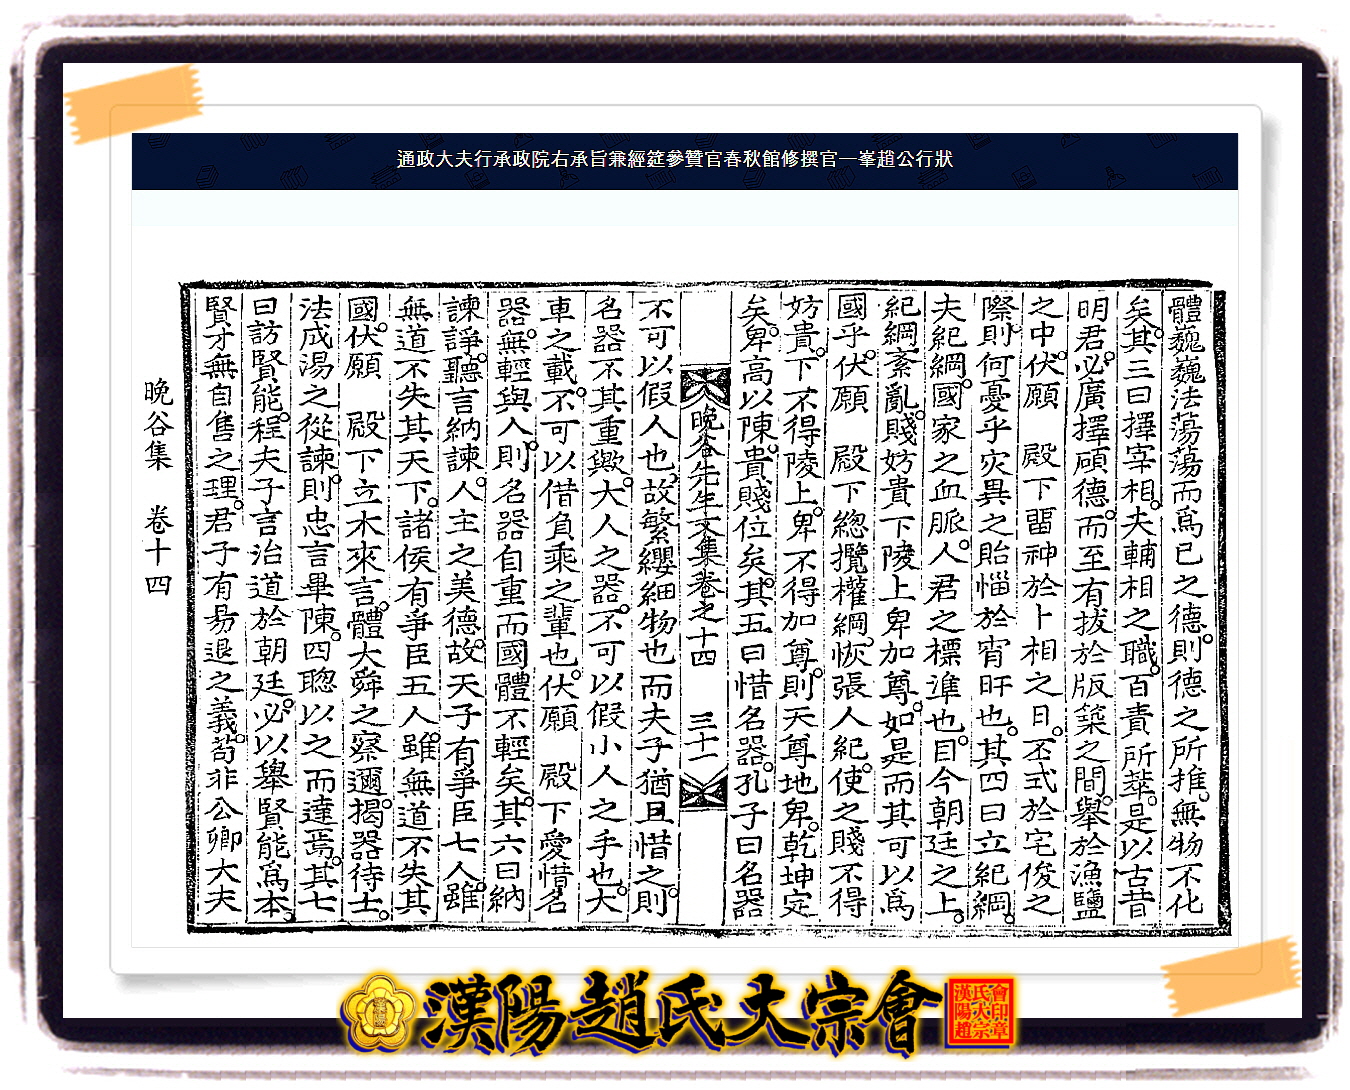 通政大夫行承政院右承旨兼經筵參贊官春秋館修撰官一峯趙公行狀
體巍巍法蕩蕩而爲已之德則德之所推無物不化
矣其三曰擇宰相夫輔相之職百責所萃是以古昔
明君必廣擇碩德而至有拔於版築之間舉於漁鹽
之中伏願 殿下留神於卜相之日丕式於宅俊之
際則何憂乎灾異之貽惱於宵旰也其四曰立紀綱
夫紀綱國家之血脈人君之標準也目今朝廷之上
紀綱紊亂賤妨貴下陵上卑加尊如是而其可以爲
國乎伏願 殿下緫攬權綱恢張人紀使之賤不得
妨貴下不得陵上卑不得加尊則天尊地卑乾坤定
矣卑高以陳貴賤位矣其五曰惜名器孔子曰名器
晩谷先生文集卷之十四 三十一
不可以假人也故繁纓細物也而夫子猶且惜之則
名器不其重歟大人之器不可以假小人之手也大
車之載不可以借負乘之輩也伏願 殿下愛惜名
器無輕與人則名器自重而國體不輕矣其六曰納
諫諍聽言納諫人主之美德故天子有爭臣七人雖
無道不失其天下諸侯有爭臣五人雖無道不失其
國伏願 殿下立木來言體大舜之察邇揭器待士
法成湯之從諫則忠言畢陳四聰以之而達焉其七
曰訪賢能程夫子言治道於朝廷必以舉賢能爲本
賢才無自售之理君子有易退之義苟非公卿大夫
晩谷集 卷十四
漢陽趙氏大宗會
漢陽趙氏大宗會印章